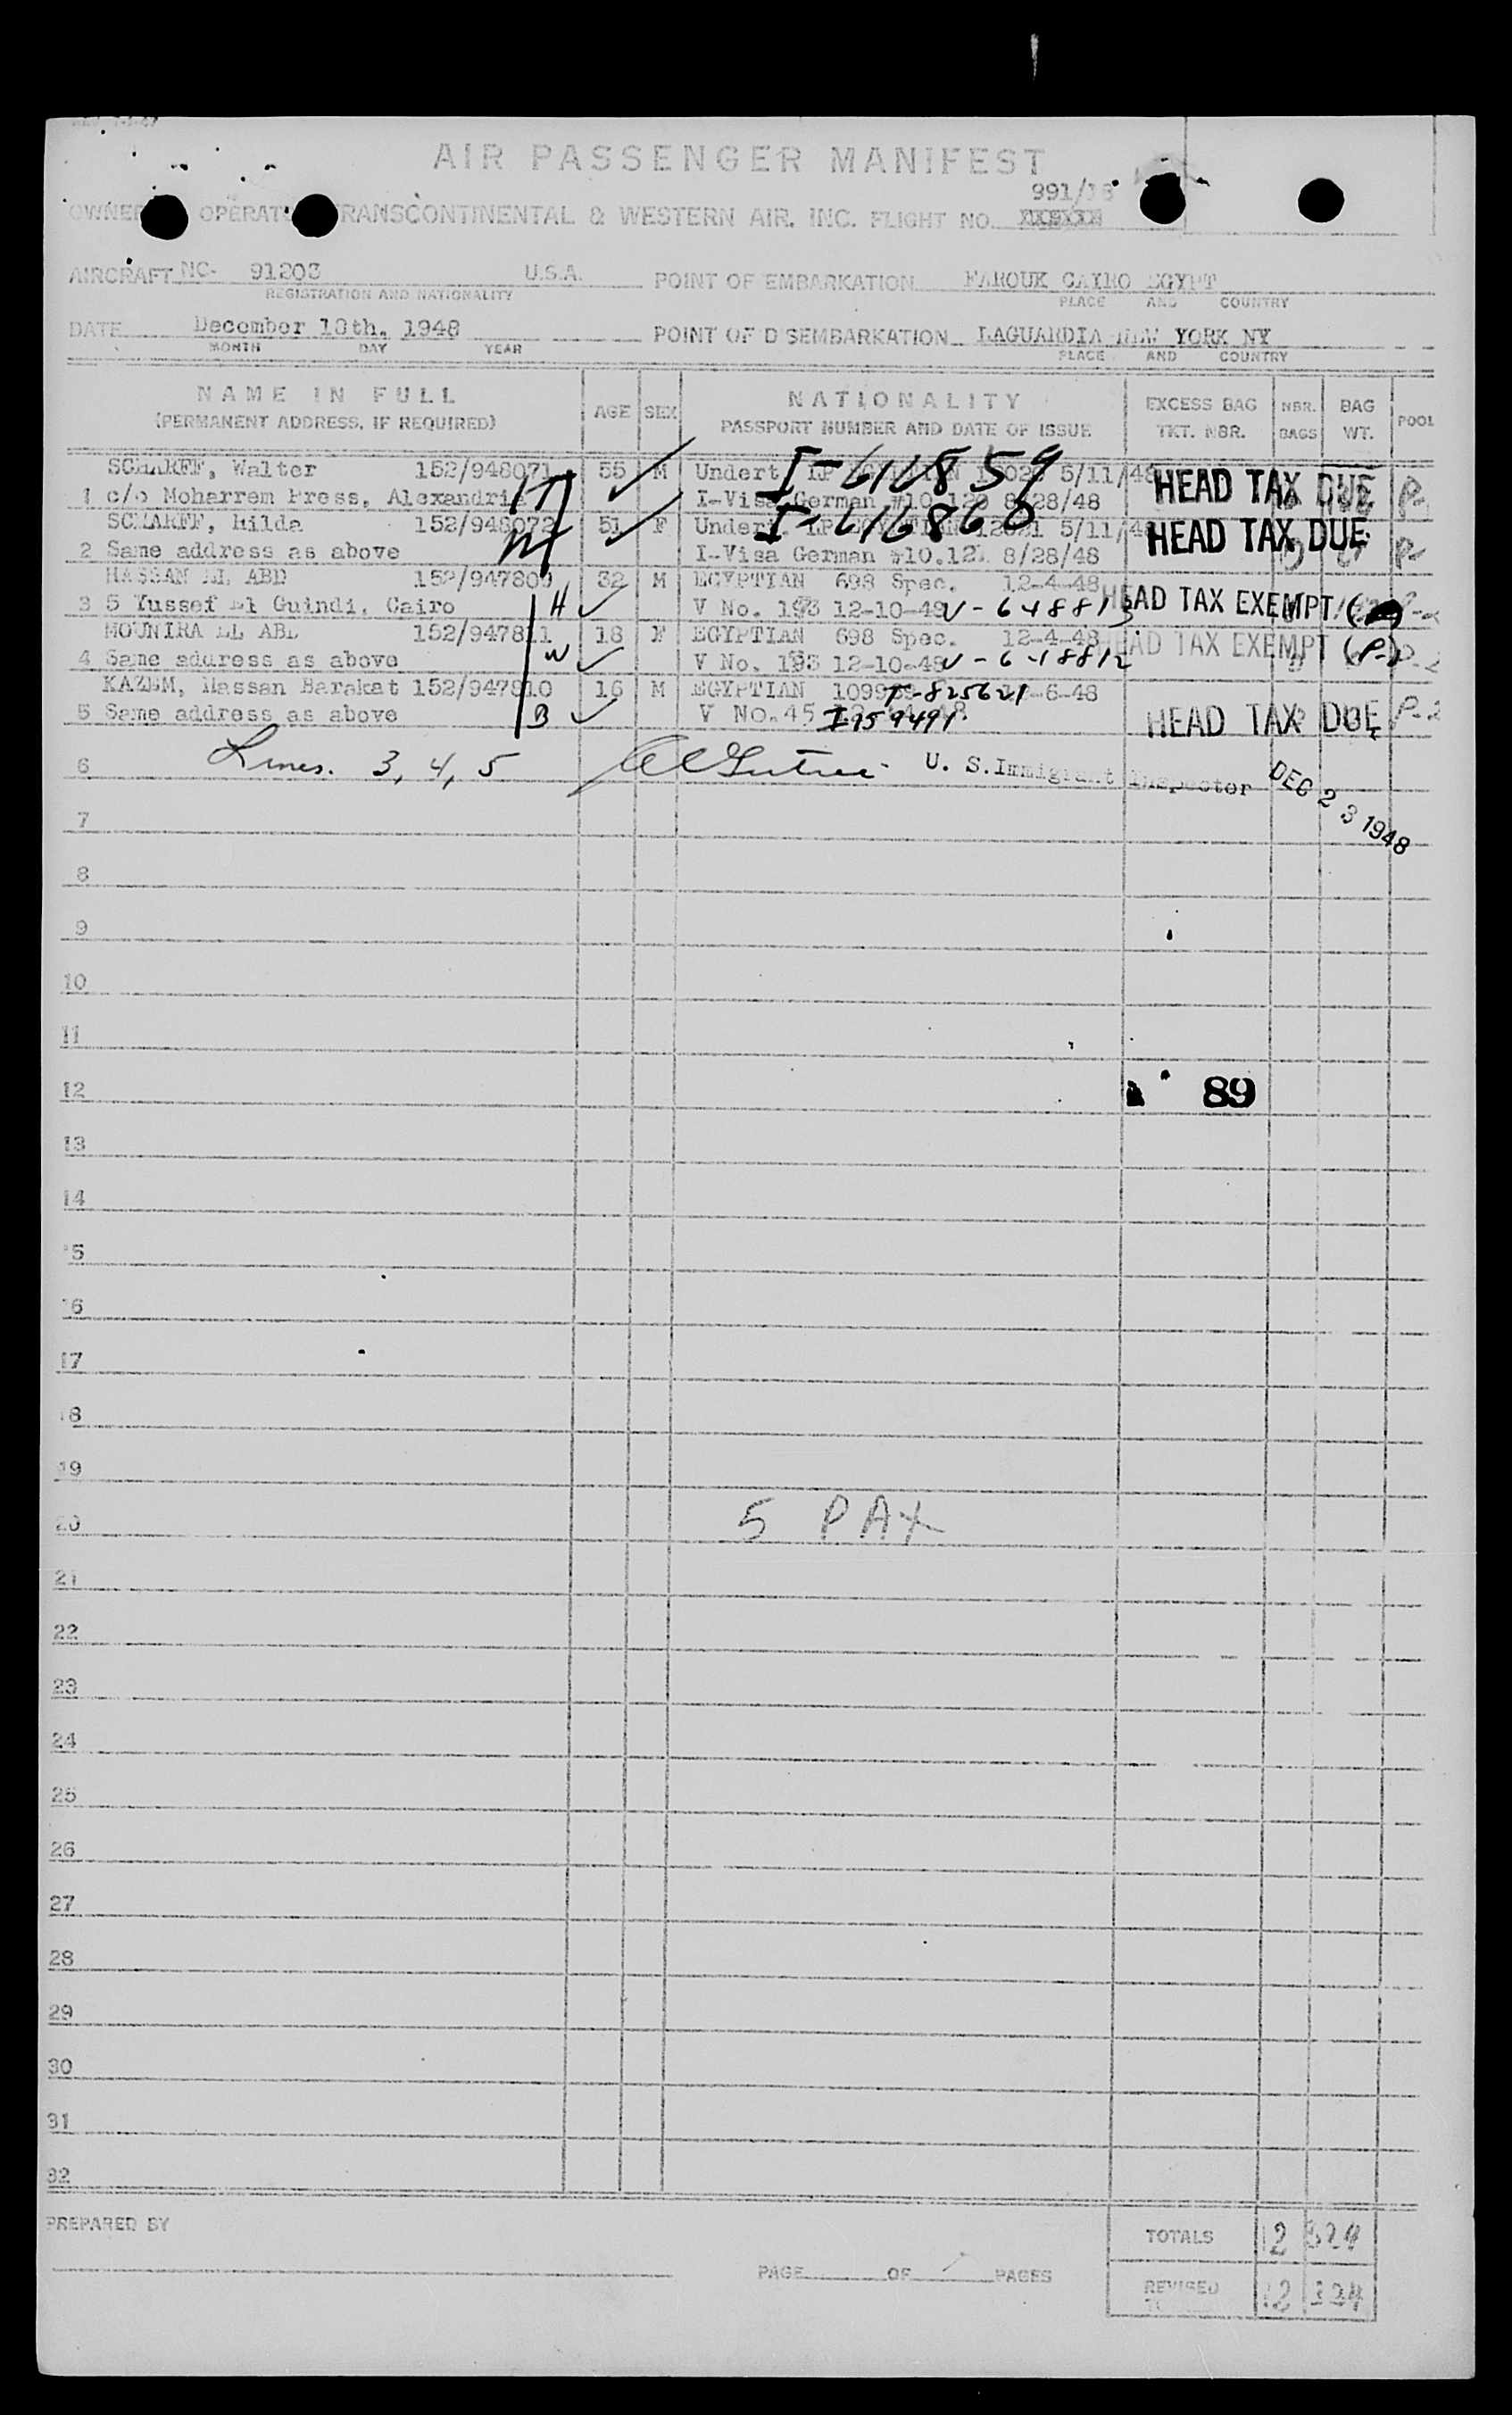 AIR PASSENGER MANIFEST
OWNER OPERATOR TRANSCONTINENTAL & WESTERN AIR. INC. FLIGHT NO. 991/
AIRCRAFT NC- 91203 U.S.A. POINT OF EMBARKATION FAROUK CAIRO EGYPT
REGISTRATION AND NATIONALITY PLACE AND COUNTRY
DATE December 18th, 1948 POINT OF DISEMBARKATION LAGUARDIA NEW YORK NY
MONTH DAY YEAR PLACE AND COUNTRY
NAME IN FULL
(PERMANENT ADDRESS, IF REQUIRED)
AGE SEX
NATIONALITY
PASSPORT NUMBER AND DATE OF ISSUE
EXCESS BAG
TKT. NBR.
NBR.
BAGS
BAG
WT.
POOL
SCHARFF, Walter 152/948071 55 M Undert. 5/11/48
I-616859
1 c/o Moharrem Press, Alexandria I-Visa German #10.120 8/28/48 HEAD TAX DUE
SCHARFF, Hilda 152/948072 51 F Undert. 5/11/48
I-616860
2 Same address as above I-Visa German #10.121 8/28/48 HEAD TAX DUE
HASSAN EL ABD 152/947809 32 M EGYPTIAN 698 Spec. 12-4-48
3 5 Yussef El Guindi, Cairo H V No. 193 12-10-48 V-648813 HEAD TAX EXEMPT
MOUNIRA EL ABD 152/947811 18 F EGYPTIAN 698 Spec. 12-4-48
4 Same address as above W V No. 193 12-10-48 V-648812 HEAD TAX EXEMPT (P-2)
KAZEM, Hassan Barakat 152/947810 16 M EGYPTIAN T-825621 -6-48
5 Same address as above B V No. 45 I959491 HEAD TAX DUE P-2
6 Lines. 3, 4, 5 U. S. Immigrant Inspector DEC 23 1948
7
8
9
10
11
12 89
13
14
15
16
17
18
19
20 5 PAX
21
22
23
24
25
26
27
28
29
30
31
32
PREPARED BY
TOTALS 12 324
PAGE OF 1 PAGES
REVISED 12 324